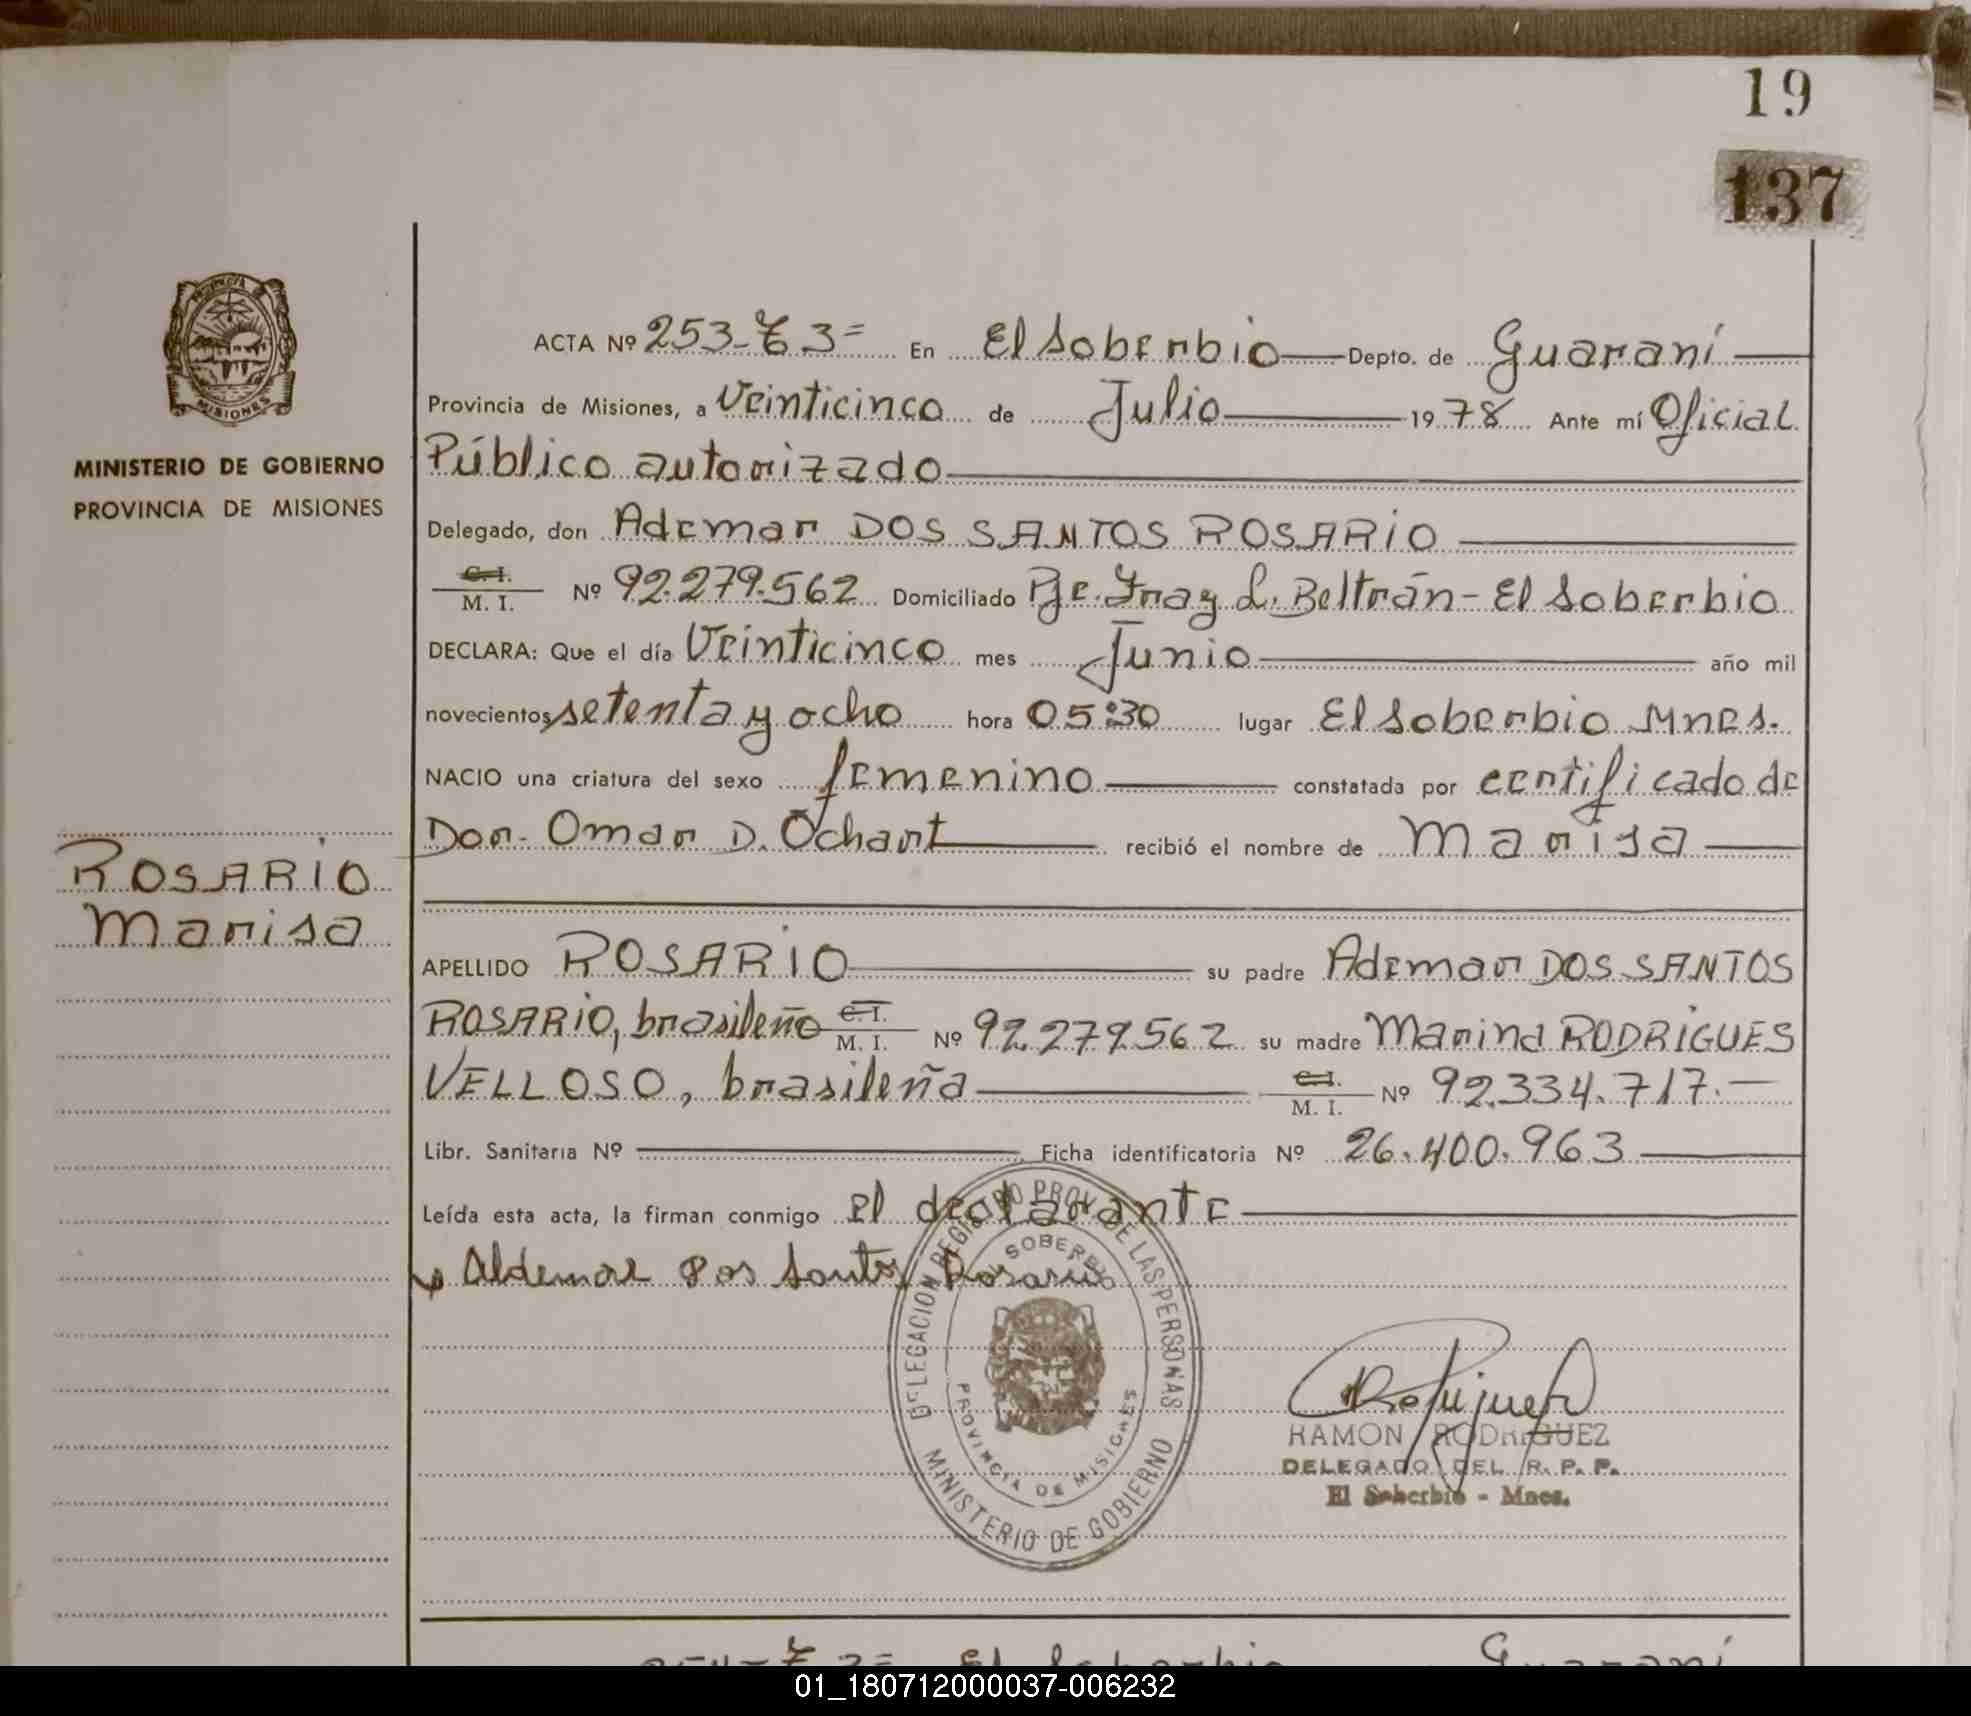 19
137
MINISTERIO DE GOBIERNO
PROVINCIA DE MISIONES
ROSARIO
Marisa
ACTA Nº 253-T 3= En El Soberbio Depto. de Guaraní
Provincia de Misiones, a Veinticinco de Julio 1978 Ante mí Oficial
Público autorizado
Delegado, don Ademar DOS SANTOS ROSARIO
C. I.
M. I. Nº 92.279.562 Domiciliado Pje. Fray L. Beltrán - El Soberbio
DECLARA: Que el día Veinticinco mes Junio año mil
novecientos setenta y ocho hora 05:30 lugar El Soberbio Mnes.
NACIO una criatura del sexo femenino constatada por certificado de
Dor. Omar D. Ochart recibió el nombre de Marisa
APELLIDO ROSARIO su padre Ademar DOS SANTOS
ROSARIO, brasileño C. I. M. I. Nº 92.279.562 su madre Marina RODRIGUES
VELLOSO, brasileña C. I. M. I. Nº 92.334.717.-
Libr. Sanitaria Nº Ficha identificatoria Nº 26.400.963
Leída esta acta, la firman conmigo el declarante
Aldemar Dos Santos Rosario
DELEGACION REGISTRO PROV. DE LAS PERSONAS
EL SOBERBIO
PROVINCIA DE MISIONES
MINISTERIO DE GOBIERNO
RAMON RODRIGUEZ
DELEGADO DEL R. P. P.
El Soberbio - Mnes.
01_180712000037-006232